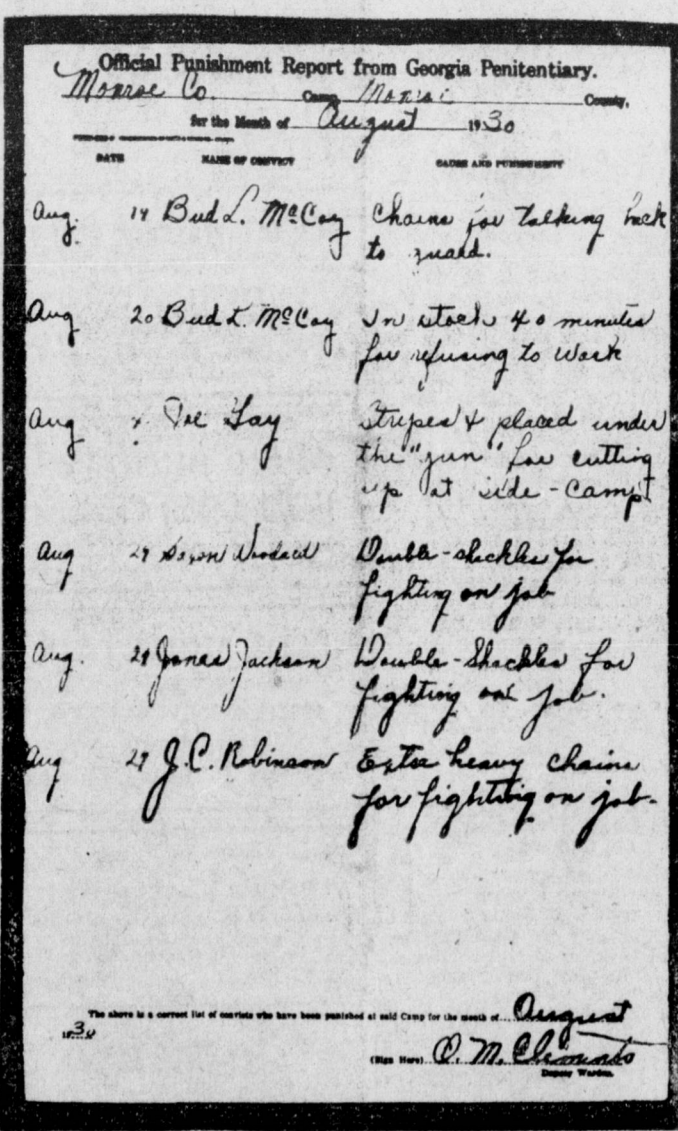 Official Punishment Report from Georgia Penitentiary.
Monroe Co. Camp, Monroe County,
for the Month of August 1930
DATE NAME OF CONVICT CAUSE AND PUNISHMENT
Aug. 19 Bud L. McCoy Chains for talking back
to guard.
Aug 20 Bud L. McCoy In stock 40 minutes
for refusing to work
Aug Joe Stripes & placed under
the "gun" for cutting
up at side-camp
Aug 29 Woodard Double-shackles for
fighting on job
Aug. 29 Jones Jackson Double-Shackles for
fighting on job.
Aug 29 J.C. Robinson Extra heavy chains
for fighting on job.
The above is a correct list of convicts who have been punished at said Camp for the month of August
1930
(Sign Here) O. M. Clements
Deputy Warden.